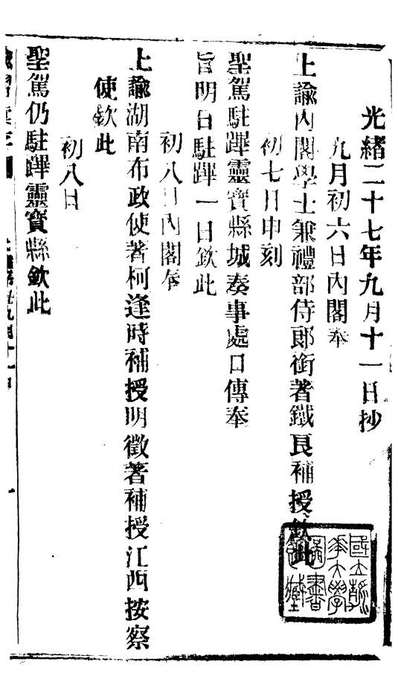 光緒二十七年九月十一日抄
九月初六日內閣奉
上諭內閣學士兼禮部侍郎銜著鐵良補授欽此
初七日申刻
聖駕駐蹕靈寶縣城奏事處口傳奉
旨明日駐蹕一日欽此
初八日內閣奉
上諭湖南布政使著柯逢時補授明徵著補授江西按察
使欽此
初八日
聖駕仍駐蹕靈寶縣欽此